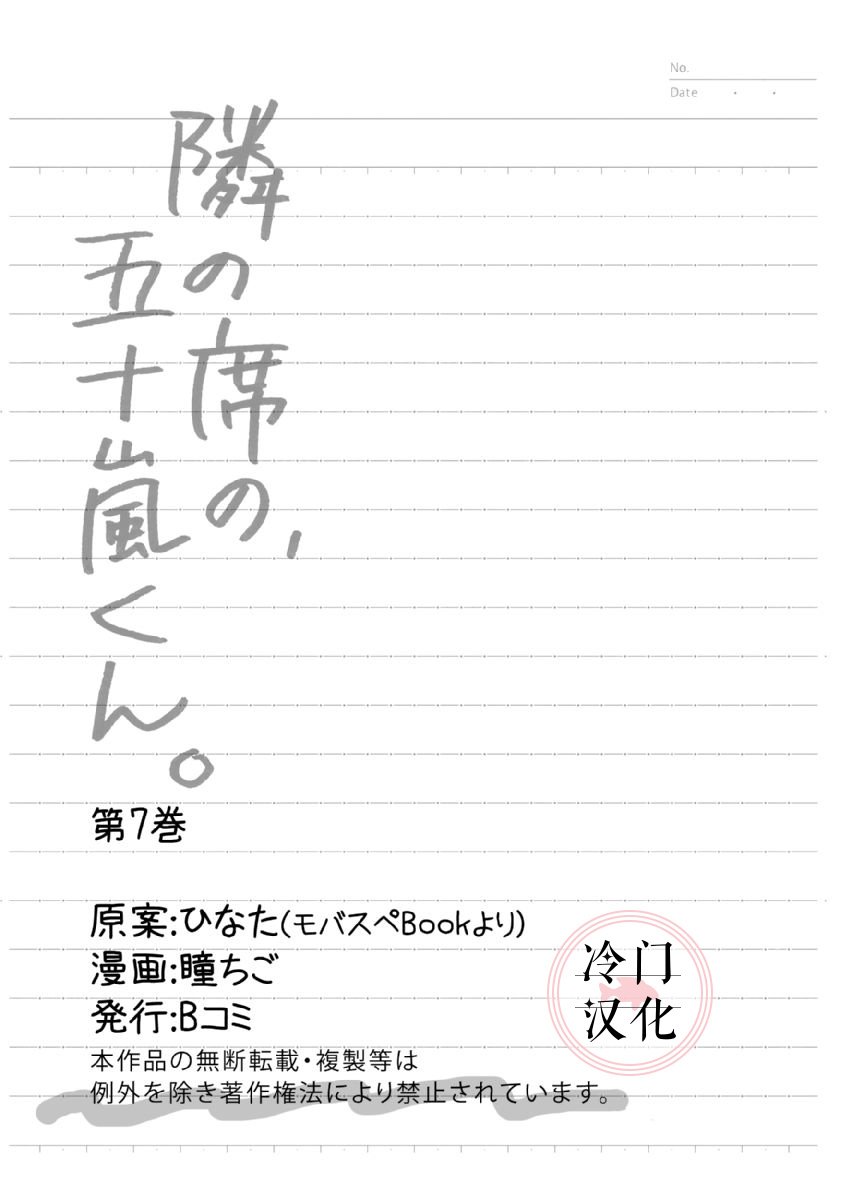 No.
Date ・ ・
隣の席の、
五十嵐くん。
第7巻
原案:ひなた(モバスペBookより)
漫画:瞳ちご
発行:Bコミ
本作品の無断転載・複製等は
例外を除き著作権法により禁止されています。
冷门
汉化